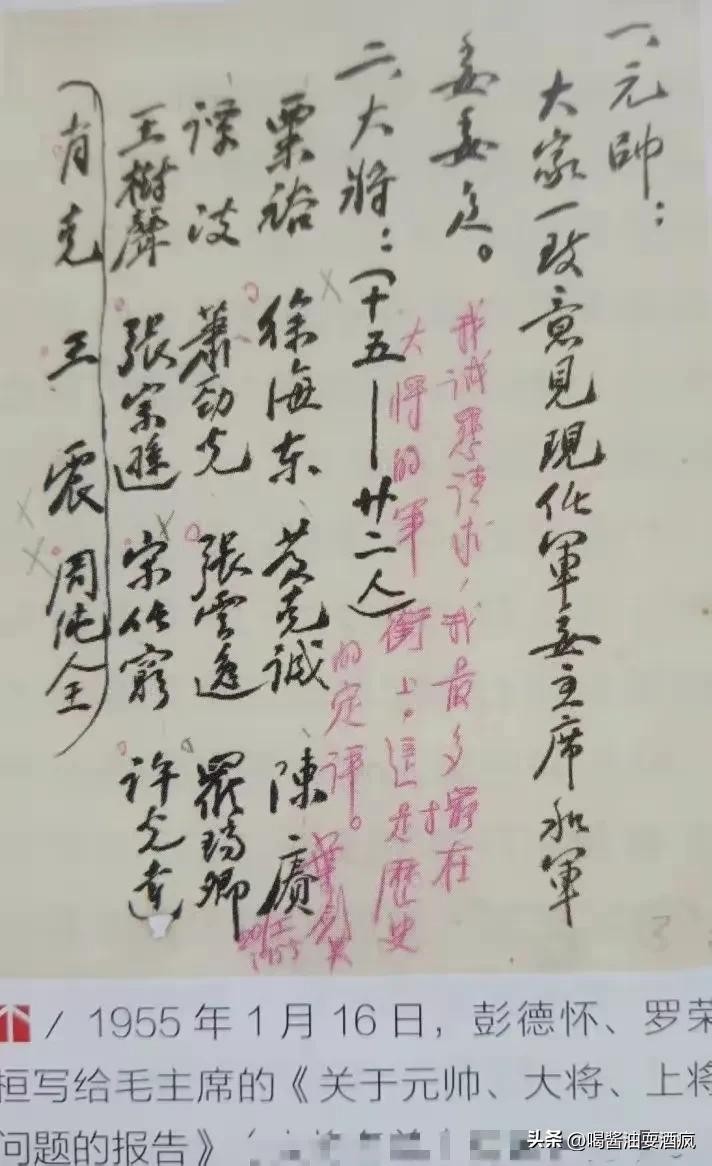 一、元帥：
大家一致意見現任軍委主席和軍
委委员。
我诚恳请求，我最多摆在
大将的军衔上。這是歷史
的定评。
葉剑英
二、大將：（十五——廿二人）
粟裕 徐海东 黄克诚 陳賡
谭政 蕭劲光 張雲逸 羅瑞卿
王樹聲 張宗遜 宋任窮 许光達
（肖克 王震 周纯全）
/ 1955 年 1 月 16 日，彭德怀、罗荣
桓写给毛主席的《关于元帅、大将、上将
问题的报告》（
头条 @喝酱油耍酒疯